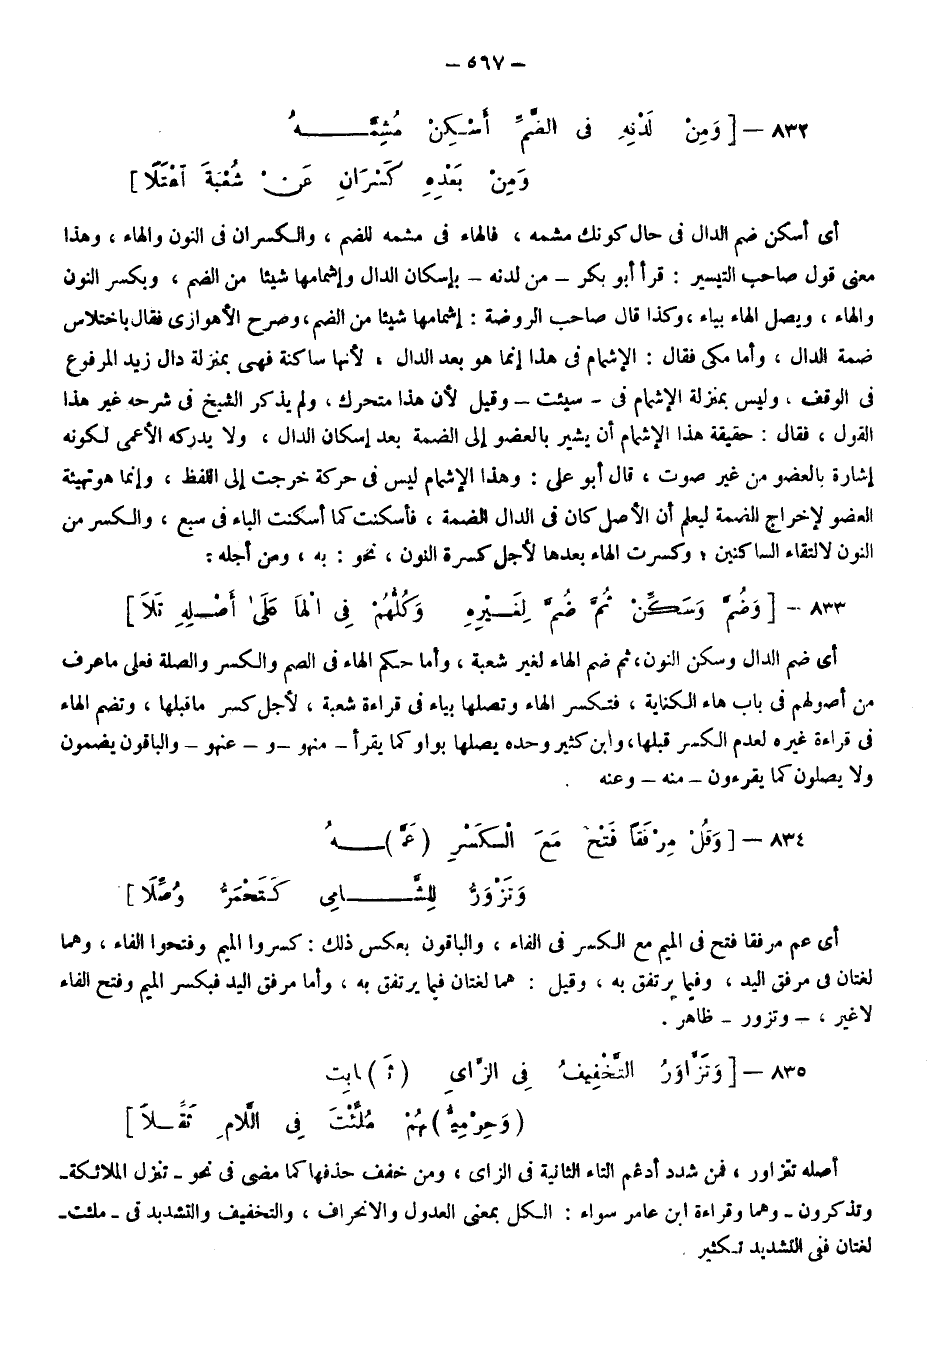 – ٥٦٧ –
٨٣٢ – [ وَمِنْ لَدْنِهِ فى الضَّمِّ أَسْكِنْ مُشِمَّـــهُ
وَمِنْ بَعْدِهِ كَسْرَانِ عَنْ شُعْبَةَ اَعْتَلَا ]
أى أسكن ضم الدال فى حال كونك مشمه ، فالهاء فى مشمه للضم ، والكسران فى النون والهاء ، وهذا
معنى قول صاحب التيسير : قرأ أبو بكر – من لدنه – بإسكان الدال وإشمامها شيئا من الضم ، وبكسر النون
والهاء ، ويصل الهاء بياء ، وكذا قال صاحب الروضة : إشمامها شيئا من الضم ، وصرح الأهوازى فقال باختلاس
ضمة الدال ، وأما مكى فقال : الإشمام فى هذا إنما هو بعد الدال ، لأنها ساكنة فهى بمنزلة دال زيد المرفوع
فى الوقف ، وليس بمنزلة الإشمام فى – سيئت – وقيل لأن هذا متحرك ، ولم يذكر الشيخ فى شرحه غير هذا
القول ، فقال : حقيقة هذا الإشمام أن يشير بالعضو إلى الضمة بعد إسكان الدال ، ولا يدركه الأعمى لكونه
إشارة بالعضو من غير صوت ، قال أبو على : وهذا الإشمام ليس فى حركة خرجت إلى اللفظ ، وإنما هو تهيئة
العضو لإخراج الضمة ليعلم أن الأصل كان فى الدال الضمة ، فأسكنت كما أسكنت الباء فى سبع ، والكسر من
النون لالتقاء الساكنين ، وكسرت الهاء بعدها لأجل كسرة النون ، نحو : به ، ومن أجله :
٨٣٣ – [ وَضُمَّ وَسَكِّنْ ثُمَّ ضُمَّ لِغَيْرِهِ وَكُلُّهُمْ فِى الْهَا عَلَىٰ أَصْلِهِ تَلَا ]
أى ضم الدال وسكن النون ، ثم ضم الهاء لغير شعبة ، وأما حكم الهاء فى الضم والكسر والصلة فعلى ماعرف
من أصولهم فى باب هاء الكناية ، فتكسر الهاء وتصلها بياء فى قراءة شعبة ، لأجل كسر ماقبلها ، وتضم الهاء
فى قراءة غيره لعدم الكسر قبلها ، وابن كثير وحده يصلها بواو كما يقرأ – منهو – و – عنهو – والباقون يضمون
ولا يصلون كما يقرءون – منه – وعنه .
٨٣٤ – [ وَقُلْ مِرْفَقًا فَتْحٌ مَعَ الْكَسْرِ (عَمَّ)ـــهُ
وَتَزْوَرُّ لِلشَّـــامِى كَتَحْمَرُّ وُصِّلَا ]
أى عم مرفقا فتح فى الميم مع الكسر فى الفاء ، والباقون بعكس ذلك : كسروا الميم وفتحوا الفاء ، وهما
لغتان فى مرفق اليد ، وفيما يرتفق به ، وقيل : هما لغتان فيما يرتفق به ، وأما مرفق اليد فبكسر الميم وفتح الفاء
لاغير ، – وتزور – ظاهر .
٨٣٥ – [ وَتَزَّاوَرُ التَّخْفِيفُ فِى الزَّاىِ (ثَـ)ابِت
(وَحِرْمِيُّ)هُمْ مُلِّئْتَ فِى اللَّامِ ثَقَّلَا ]
أصله تتزاور ، فمن شدد أدغم التاء الثانية فى الزاى ، ومن خفف حذفها كما مضى فى نحو – تنزل الملائكة –
وتذكرون – وهما وقراءة ابن عامر سواء : الكل بمعنى العدول والانحراف ، والتخفيف والتشديد فى – ملئت –
لغتان ففى التشديد تكثير .